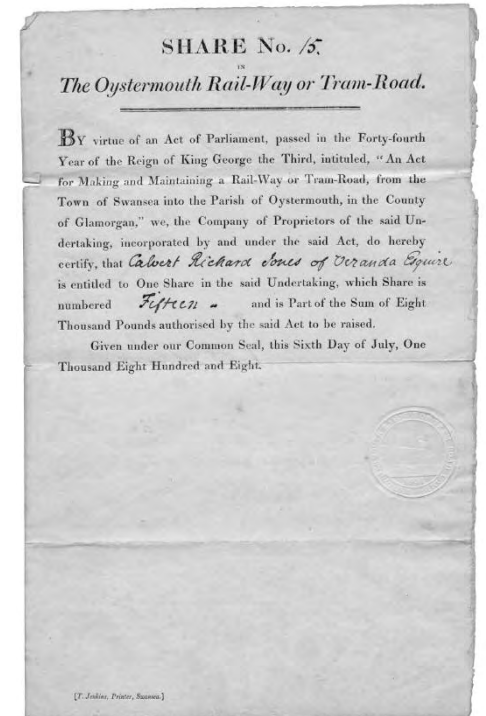 SHARE No. 15.
IN
The Oystermouth Rail-Way or Tram-Road.
BY virtue of an Act of Parliament, passed in the Forty-fourth
Year of the Reign of King George the Third, intituled, "An Act
for Making and Maintaining a Rail-Way or Tram-Road, from the
Town of Swansea into the Parish of Oystermouth, in the County
of Glamorgan," we, the Company of Proprietors of the said Un-
dertaking, incorporated by and under the said Act, do hereby
certify, that Calvert Richard Jones of Veranda Esquire
is entitled to One Share in the said Undertaking, which Share is
numbered Fifteen - and is Part of the Sum of Eight
Thousand Pounds authorised by the said Act to be raised.
Given under our Common Seal, this Sixth Day of July, One
Thousand Eight Hundred and Eight.
[T. Jenkins, Printer, Swansea.]